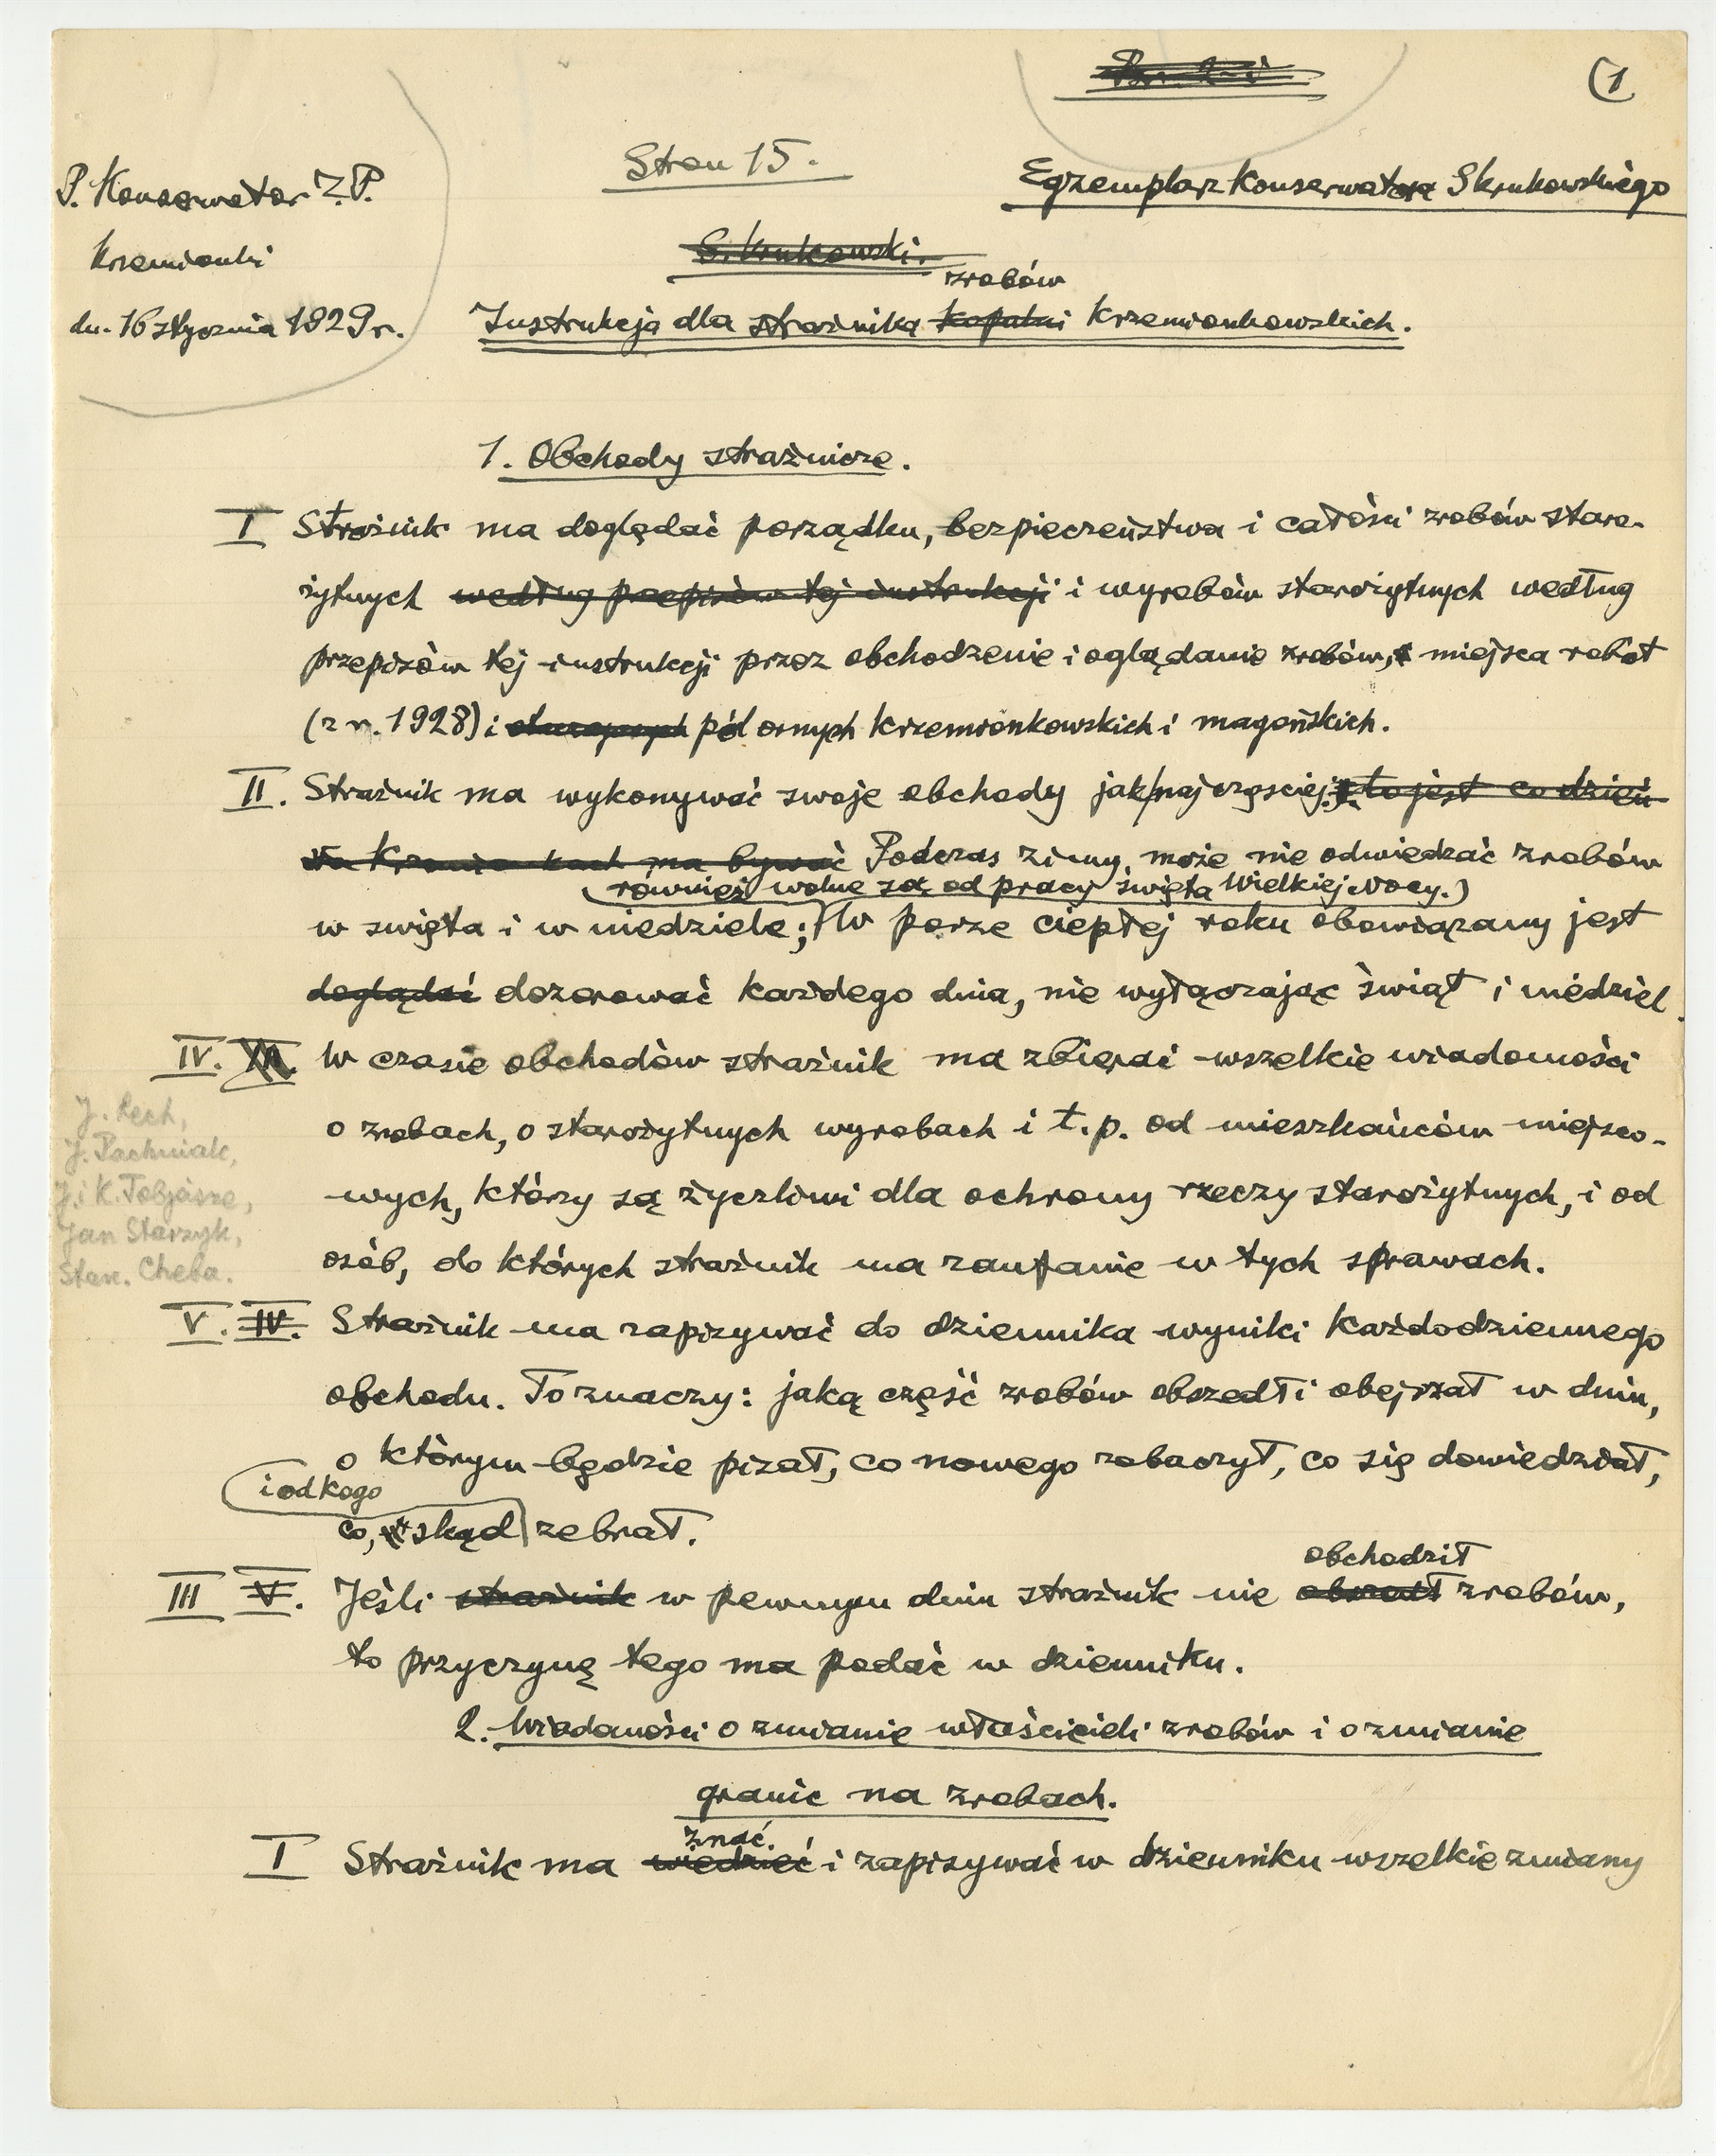 (1
Stron 15.
Egzemplarz Konserwatora SKrukowskiego
P. Konserwator Z.P.
Krzemionki
dn. 16 stycznia 1929 r.
S. Krukowski.
zrobów
Instrukcja dla strażnika kopalni Krzemionkowskich.
1. Obchody strażnicze.
I Strażnik ma doglądać porządku, bezpieczeństwa i całości zrobów staro-
żytnych według przepisów tej instrukcji i wyrobów starożytnych według
przepisów tej instrukcji przez obchodzenie i oglądanie zrobów, miejsca robót
(z r. 1928) i pól ornych Krzemionkowskich i magońskich.
II. Strażnik ma wykonywać swoje obchody jak/najczęściej, to jest co dzień
ma bywać Podczas zimy może nie odwiedzać zrobów
(również wolne są od pracy święta Wielkiej Nocy.)
w święta i w niedziele; W porze ciepłej roku obowiązany jest
doglądać dozorować każdego dnia, nie wyłączając świąt i niedziel.
IV. III. W czasie obchodów strażnik ma zbierać wszelkie wiadomości
o zrobach, o starożytnych wyrobach i t.p. od mieszkańców miejsco-
wych, którzy są życzliwi dla ochrony rzeczy starożytnych, i od
osób, do których strażnik ma zaufanie w tych sprawach.
J. Lech,
J. Pachniak,
J. i K. Tobjasze,
Jan Starzyk,
Stan. Cheba.
V. IV. Strażnik ma zapisywać do dziennika wyniki każdodziennego
obchodu. To znaczy: jaką część zrobów obszedł i obejrzał w dniu,
o którym będzie pisał, co nowego zobaczył, co się dowiedział,
i od kogo
co, skąd zebrał.
obchodził
III V. Jeśli strażnik w pewnym dniu strażnik nie obszedł zrobów,
to przyczynę tego ma podać w dzienniku.
2. Wiadomości o zmianie właścicieli zrobów i o zmianie
granic na zrobach.
znać
I Strażnik ma wiedzieć i zapisywać w dzienniku wszelkie zmiany